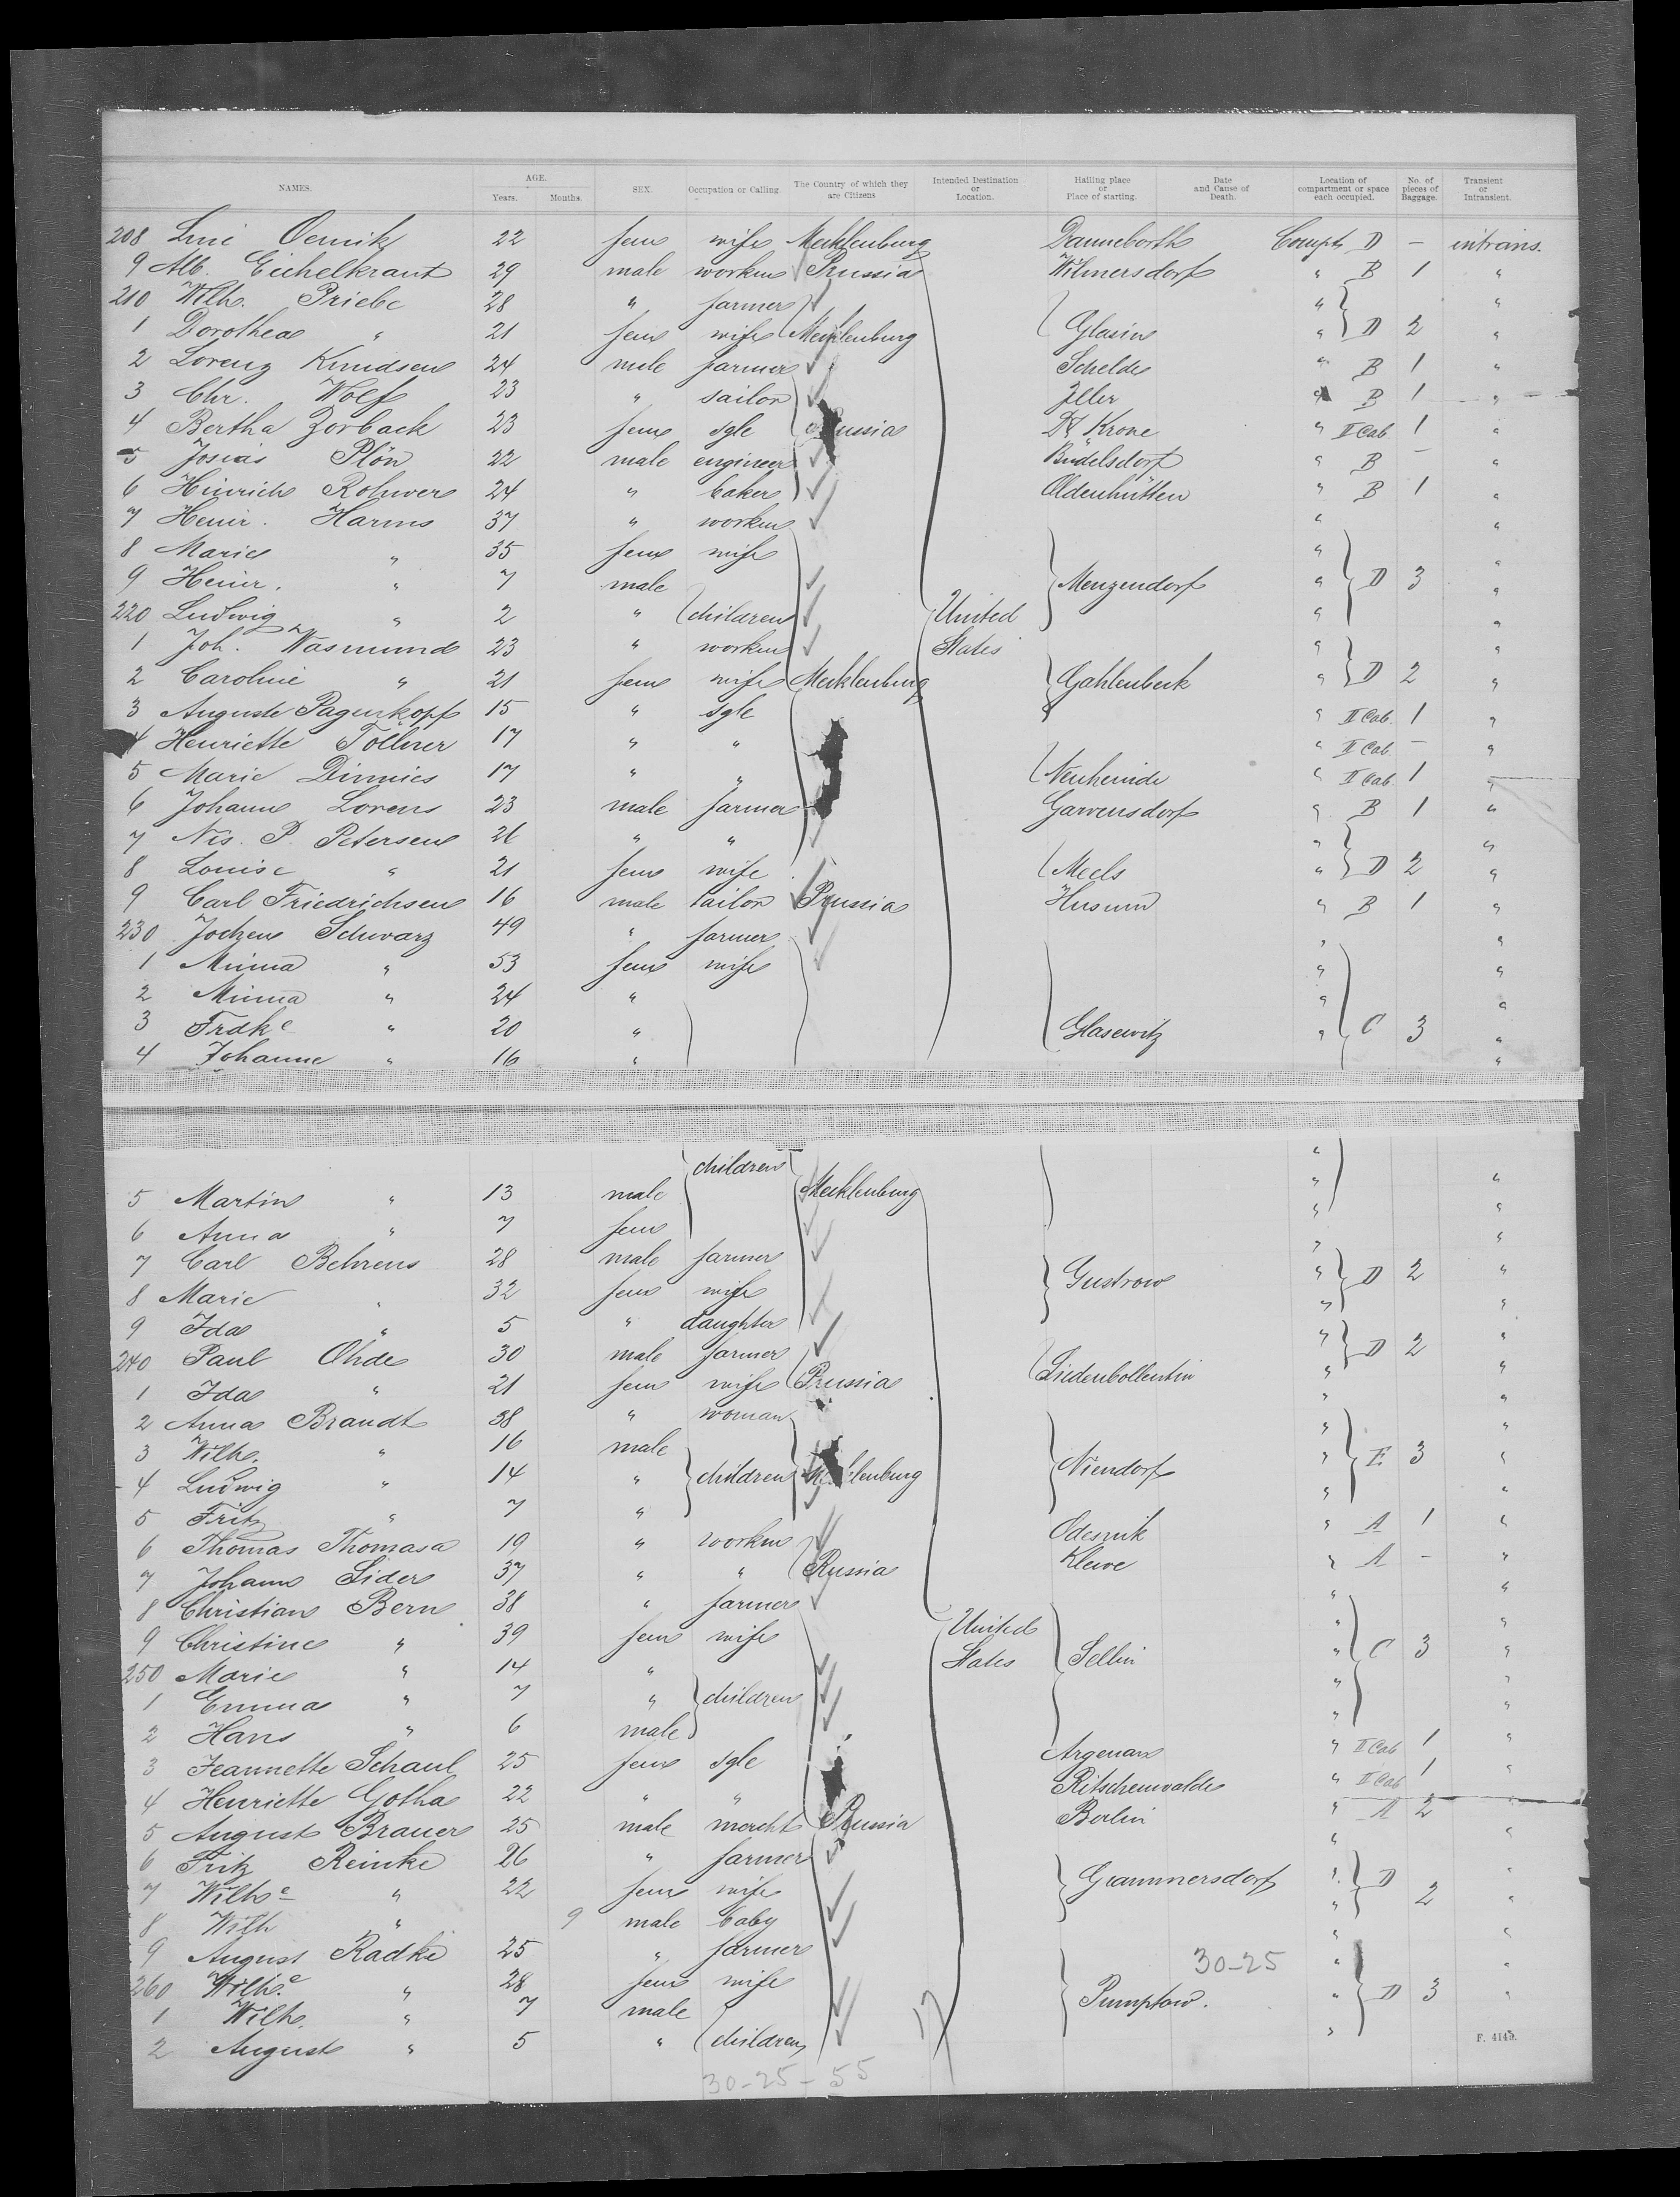 NAMES. AGE. Years. Months. SEX. Occupation or Calling. The Country of which they are Citizens Intended Destination or Location. Hailing place or Place of starting. Date and Cause of Death. Location of compartment or space each occupied. No. of pieces of Baggage. Transient or Intransient.
208 Line 22 fem wife Mecklenburg Danneborth Compt D – intrans.
9 Alb. Eichelkraut 29 male workm Prussia Wilmersdorf " B 1 "
210 Wilh. Priebe 28 " farmer " "
1 Dorothea " 21 fem wife Mecklenburg Glasin " D 2 "
2 Lorenz Knudsen 24 male farmer Schelde " B 1 "
3 Chr. Wolf 23 " sailor Jller " B 1 "
4 Bertha Zorback 23 fem sgle Prussia Dt Krone " II Cab 1 "
5 Josias Plön 22 male engineer Büdelsdorf " B – "
6 Hinrich Rohwer 24 " baker Oldenhütten " B 1 "
7 Heinr. Harms 37 " workm " "
8 Marie " 35 fem wife " "
9 Heinr. " 7 male Menzendorf " D 3 "
220 Ludwig " 2 " children United " "
1 Joh. Wasmund 23 " workm States " "
2 Caroline " 21 fem wife Mecklenburg Gahlenbeck " D 2 "
3 Auguste Pagenkopf 15 " sgle " II Cab. 1 "
4 Henriette Töllner 17 " " " II Cab – "
5 Marie Dinnies 17 " " " II Cab 1 "
6 Johann Lorens 23 male farmer Garvensdorf " B 1 "
7 Nis. P. Petersen 26 " " " "
8 Louise " 21 fem wife Meels " D 2 "
9 Carl Friedrichsen 16 male tailor Prussia Husum " B 1 "
230 Jochen Schwarz 49 " farmer " "
1 Minna " 53 fem wife " "
2 Minna " 24 " " "
3 Frdke " 20 " Glasewitz " C 3 "
4 Johanne " 16 " "
children "
5 Martin " 13 male Mecklenburg " "
6 Anna " 7 fem " "
7 Carl Behrens 28 male farmer " "
8 Marie " 32 fem wife Gustrow " D 2 "
9 Ida " 5 " daughter " "
240 Paul Ohde 30 male farmer " D 2 "
1 Ida " 21 fem wife Prussia Siedenbollentin " "
2 Anna Brandt 38 " woman " "
3 Wilh. " 16 male " "
4 Ludwig " 14 " children Mecklenburg Niendorf " E 3 "
5 Fritz " 7 " " "
6 Thomas Thomasa 19 " workm Odesnik " A 1 "
7 Johann Sider 37 " " Russia Kleve " A – "
8 Christian Bern 38 " farmer " "
9 Christine " 39 fem wife United " "
250 Marie " 14 " States Sellin " C 3 "
1 Emma " 7 " children " "
2 Hans " 6 male " "
3 Jeannette Schaul 25 fem sgle Argenau " II Cab 1 "
4 Henriette Gotha 22 " " Ritschenwalde " II Cab 1 "
5 August Brauer 25 male mercht Prussia Berlin " A 2 "
6 Fritz Reinke 26 " farmer " "
7 Wilhe " 22 fem wife Grammersdorf " D "
8 Wilh " 9 male baby " 2 "
9 August Radke 25 " farmer " "
30-25
260 Wilhe " 28 fem wife " "
1 Wilh. " 7 male Pumptow. " D 3 "
2 August " 5 " children "
F. 4149.
30-25-55